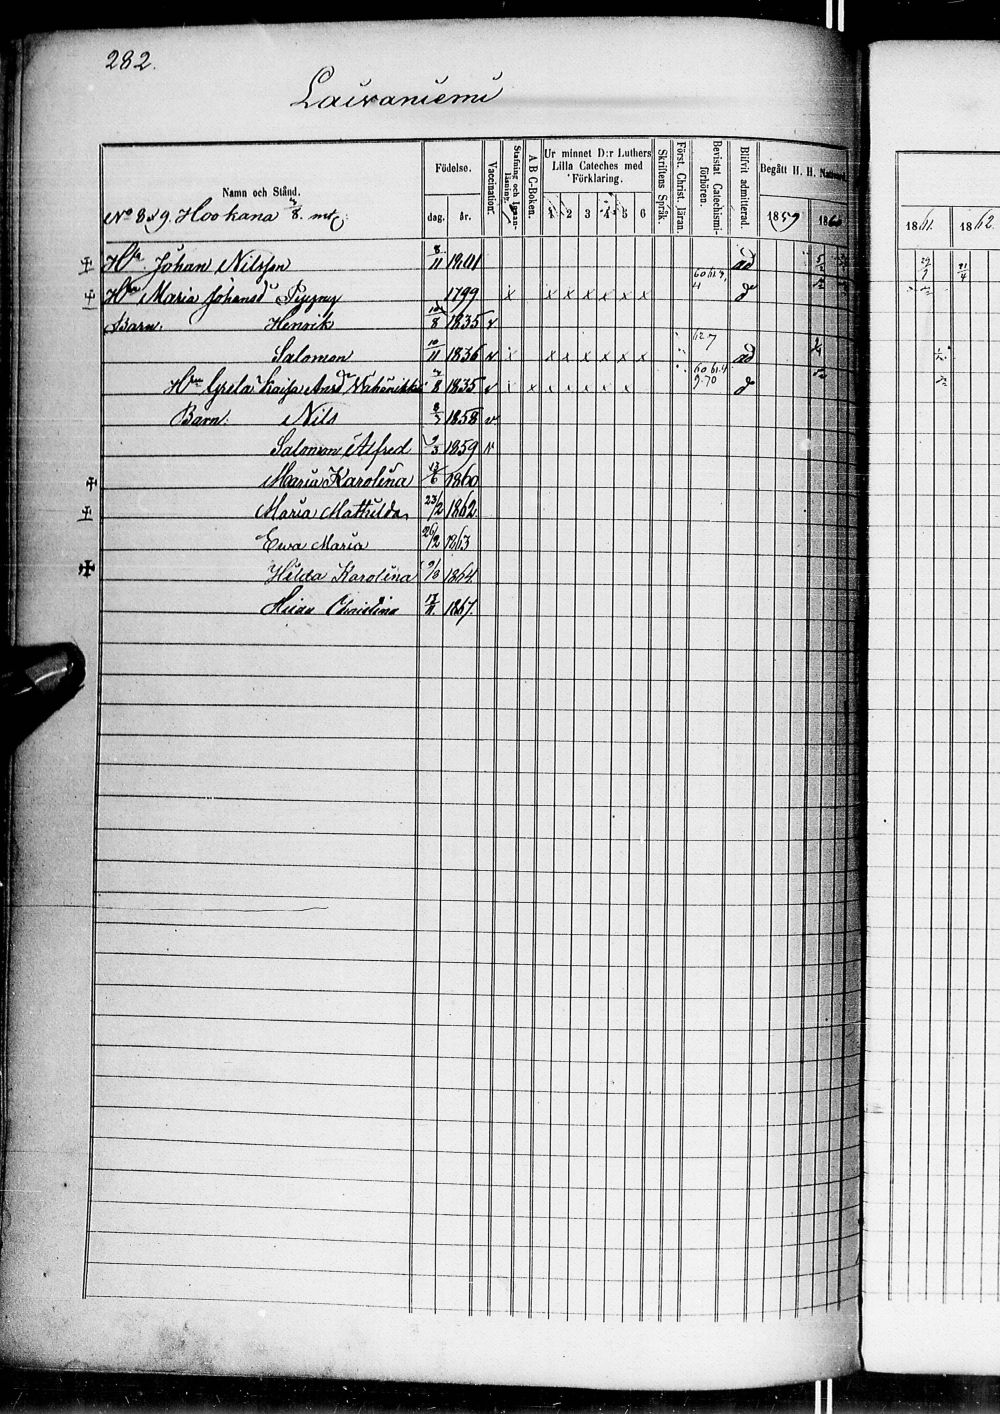 282.
Laivaniemi
Namn och Stånd.
Födelse.
dag. år.
Vaccination.
Stafning och Innanläsning.
A B C-Boken.
Ur minnet D:r Luthers Lilla Cateches med Förklaring.
1 2 3 4 5 6
Skriftens Språk.
Först. Christ. läran.
Bevistat Catechismiförhören.
Blifvit admitterad.
Begått H. H. Nattvard
1859 1860
1861. 1862.
No 8 & 9. Hookana 3/8. mt
Johan Nilsson 8/11 1801 ad
Maria Johansdr 1799 x x x x x x x 60 61.3, 4 d
Barn: Henrik 8 1835 v
Salomon 10/11 1836 v x x x x x x x 62.7 ad
Greta Kaisa Andsdr 8 1835 v x x x x x x x 60 61.4 9.70 d
Barn: Nils 8/7 1858 v
Salomon Alfred 9/3 1859 v
Maria Karolina 13/6 1860
Maria Mathilda 23/2 1862
Ewa Maria 26/2 1863
Hilda Karolina 1864
Christina 17/11. 1867.